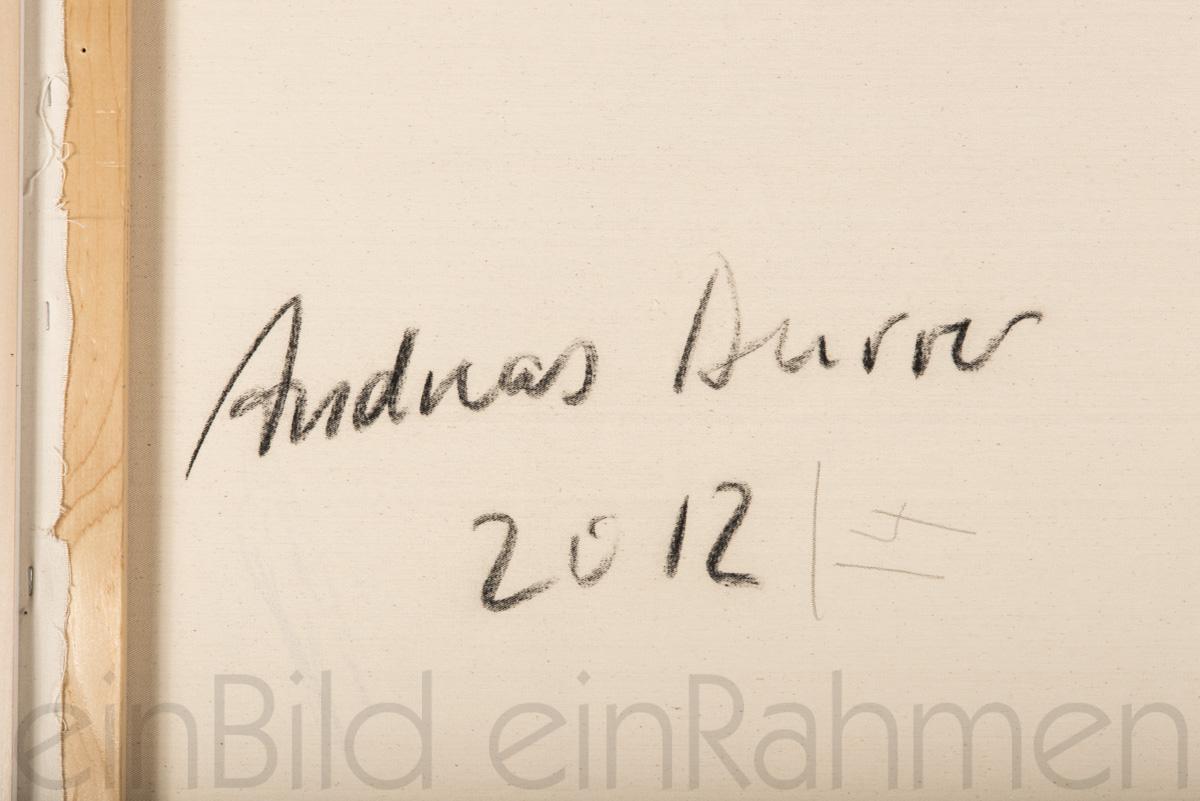 Andreas Durrer
2012
14
einBild einRahmen